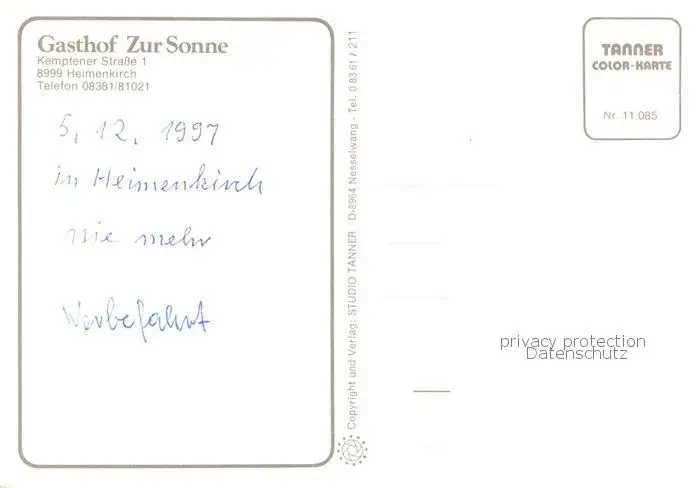 Gasthof Zur Sonne
Kemptener Straße 1
8999 Heimenkirch
Telefon 08381/81021
5. 12. 1997
in Heimenkirch
nie mehr
Werbefahrt
Copyright und Verlag: STUDIO TANNER D-8964 Nesselwang - Tel. 0 83 61 / 211
TANNER
COLOR-KARTE
Nr. 11.085
privacy protection
Datenschutz